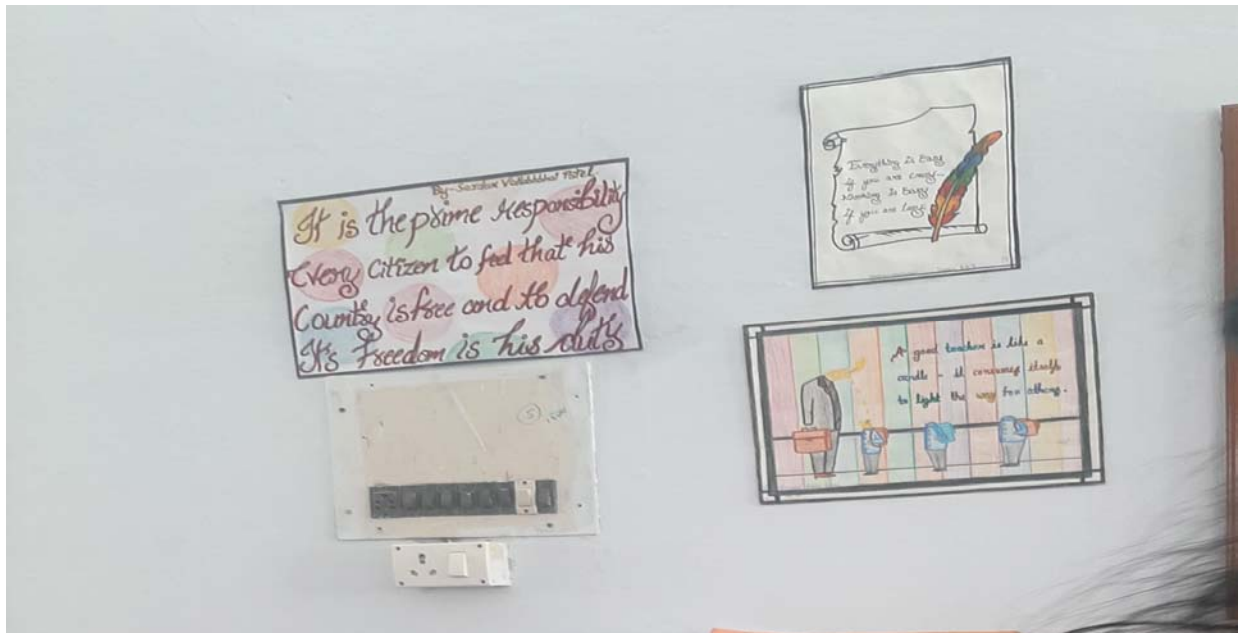 By- Sardar Vallabhbhai Patel
It is the prime responsibility
Every Citizen to feel that his
Country is free and to defend
It's Freedom is his duty
Everything is Easy
if you are crazy-
Nothing is Easy
if you are lazy-
A good teacher is like a
candle - it consumes itself
to light the way for others.
5